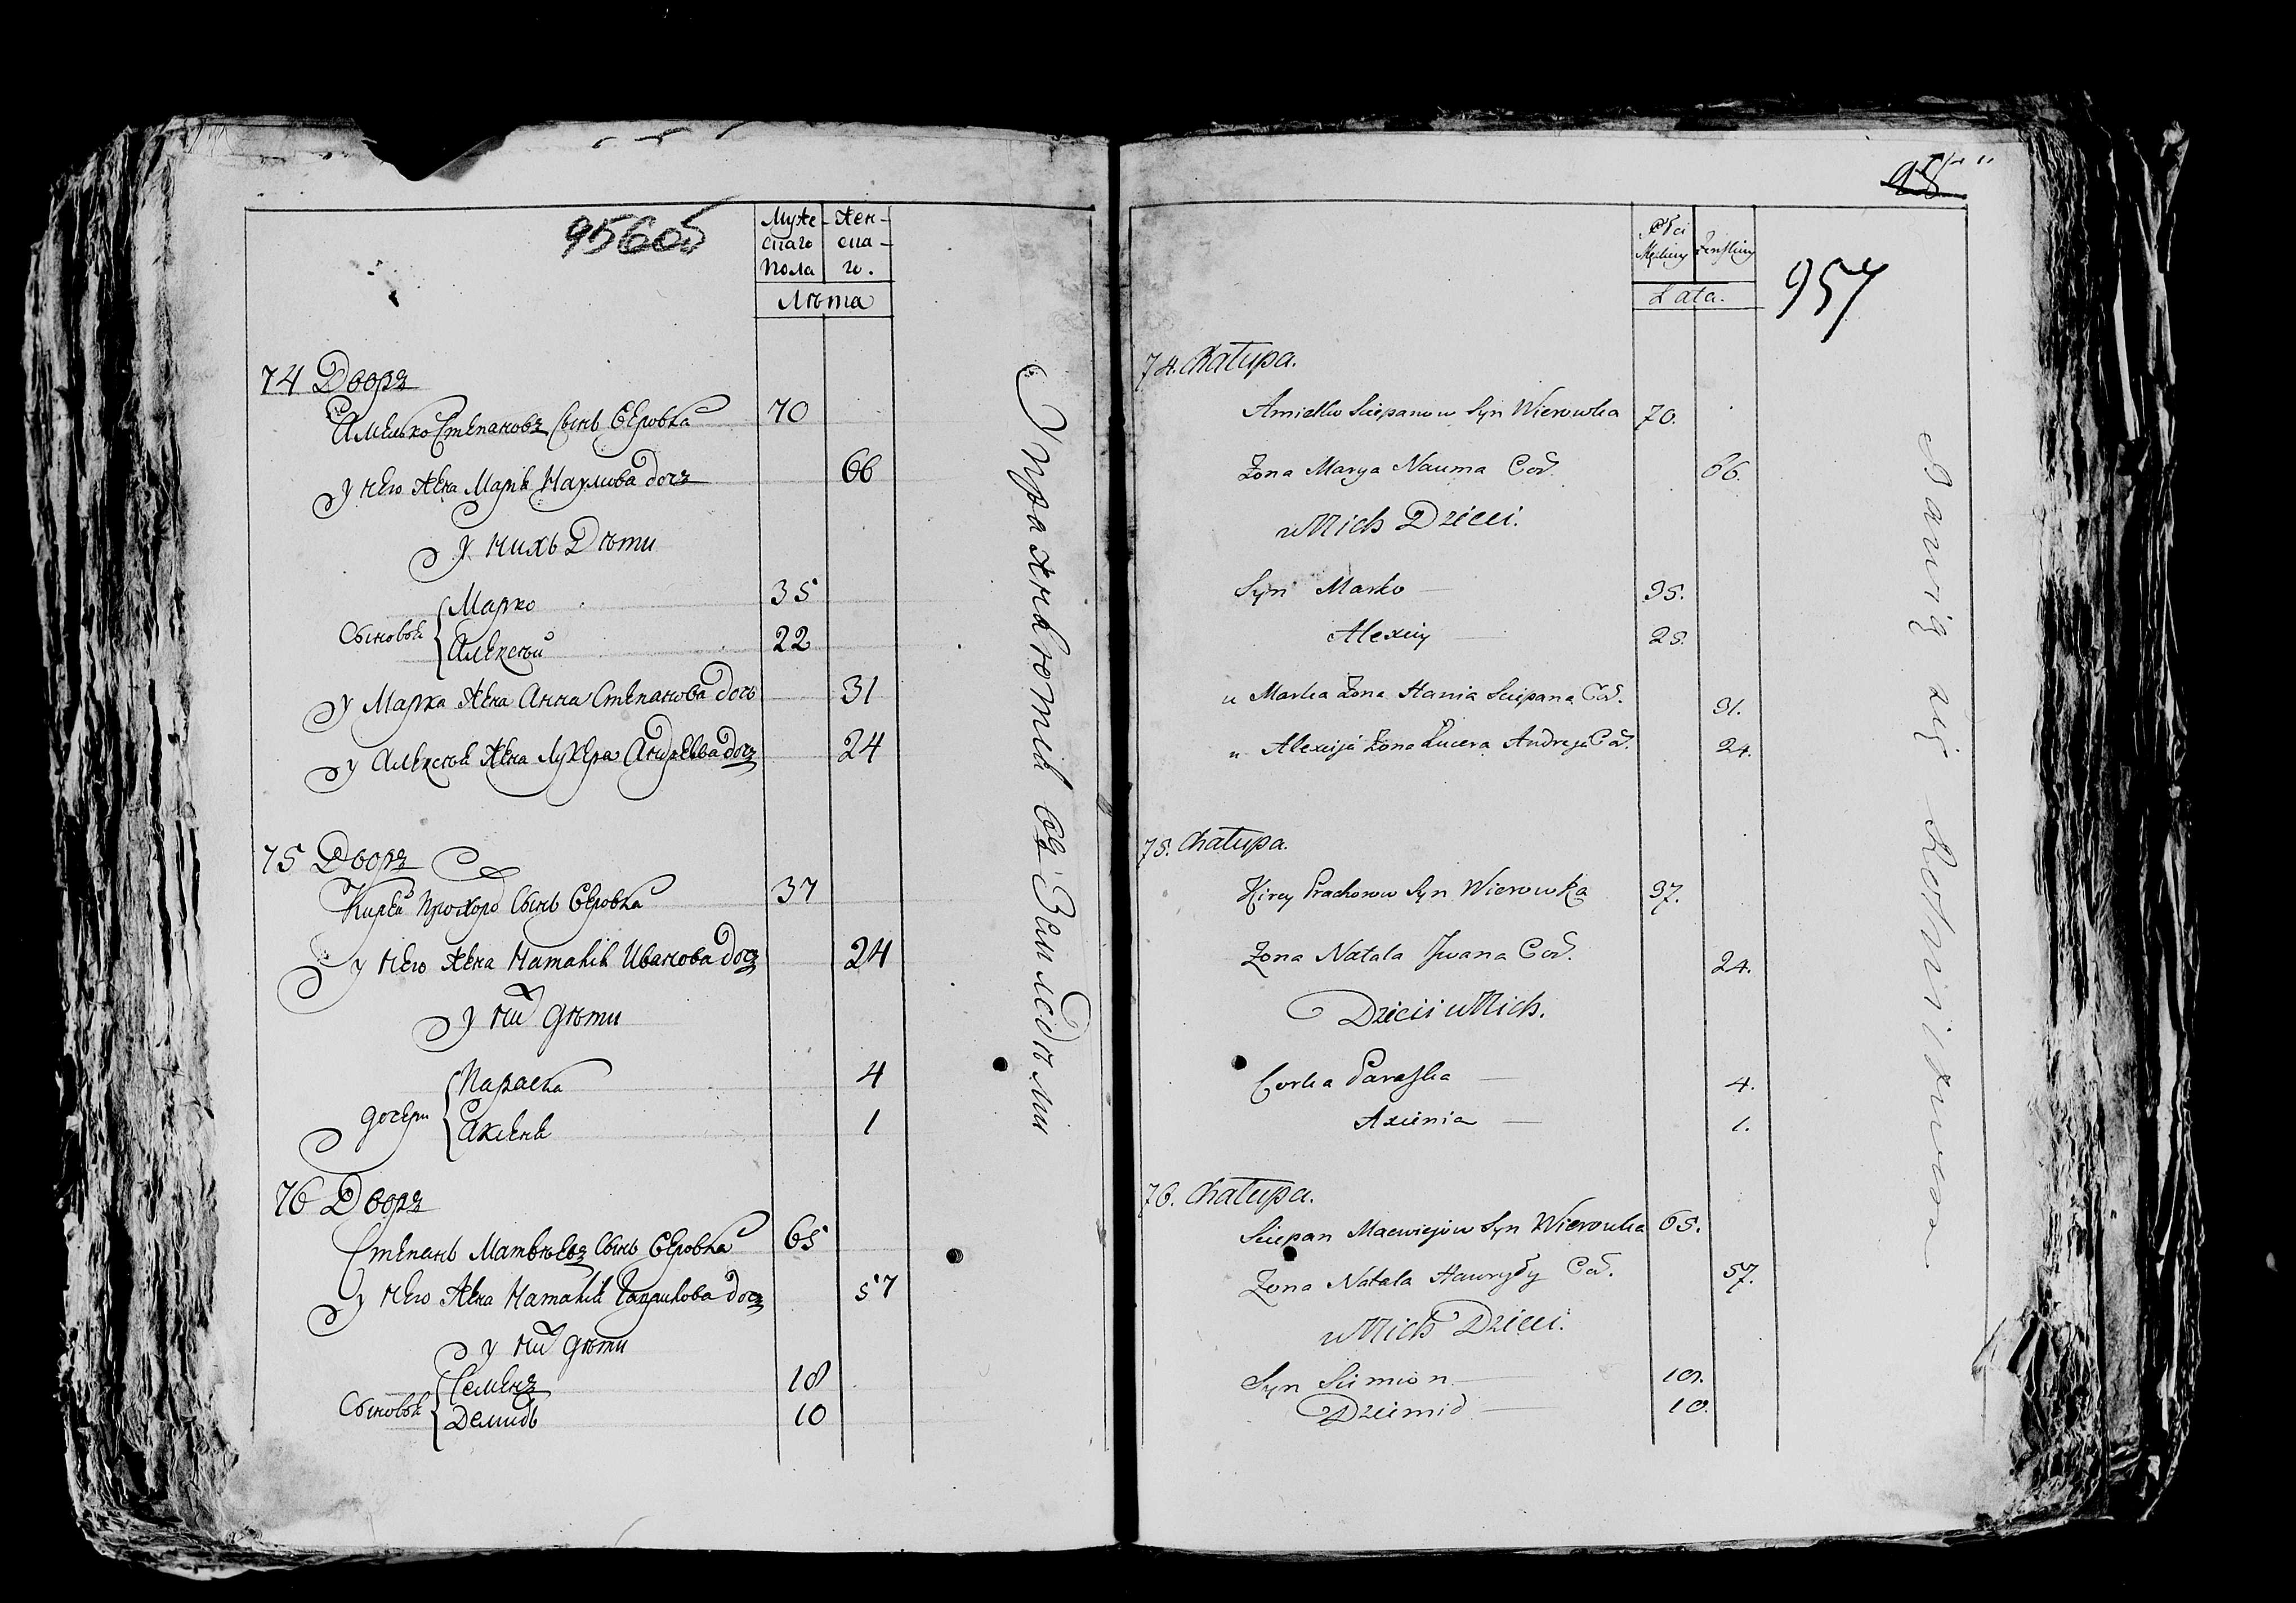 956об
Муже-
скаго
пола
Жен-
ска-
го.
Лѣта
74 Дворъ
Амелько Степановъ Сынъ Вѣровка 70
у него жена Марья Наумова дочъ 66
у нихъ Дѣти
Сыновья
Марко 35
Алексѣй 22
у Марка жена Анна Степанова дочь 31
у Алексѣя жена Лукера Андреева дочъ 24
75 Дворъ
Кирей Прохоро Сынъ Вѣровка 37
у него жена Наталья Иванова дочъ 24
у ни дѣти
дочери
Параска 4
Аксенья 1
76 Дворъ
Степанъ Матвѣевъ Сынъ Вѣровка 65
у него жена Наталья Гаврилова дочъ 57
у ни дѣти
Сыновья
Семенъ 18
Демидъ 10
Упражняются въ Замледѣліи
98
957
Płci
Męskiey
Żeńskiey
Lata.
74. Chałupa.
Amielko Sciepanow Syn Wierowka 70.
Żona Marya Nauma Cor. 66.
u Nich Dzieci.
Syn Marko — 35.
Alexiey — 25.
u Marka Żona Hania Sciepana Cor. 31.
u Alexieja Żona Łucera Andreja Cor. 24.
75. Chałupa.
Kirey Prachorow Syn Wierowka 37.
Żona Natala Jwana Cor. 24.
Dzieci u Nich.
Corka Paraska — 4.
Axienia — 1.
76. Chałupa.
Sciepan Maewiejow Syn Wierowka 65.
Żona Natala Hawryły Cor. 57.
u Nich Dzieci.
Syn Siemion — 18.
Dziemid — 10.
Bawią się Rolnictwem